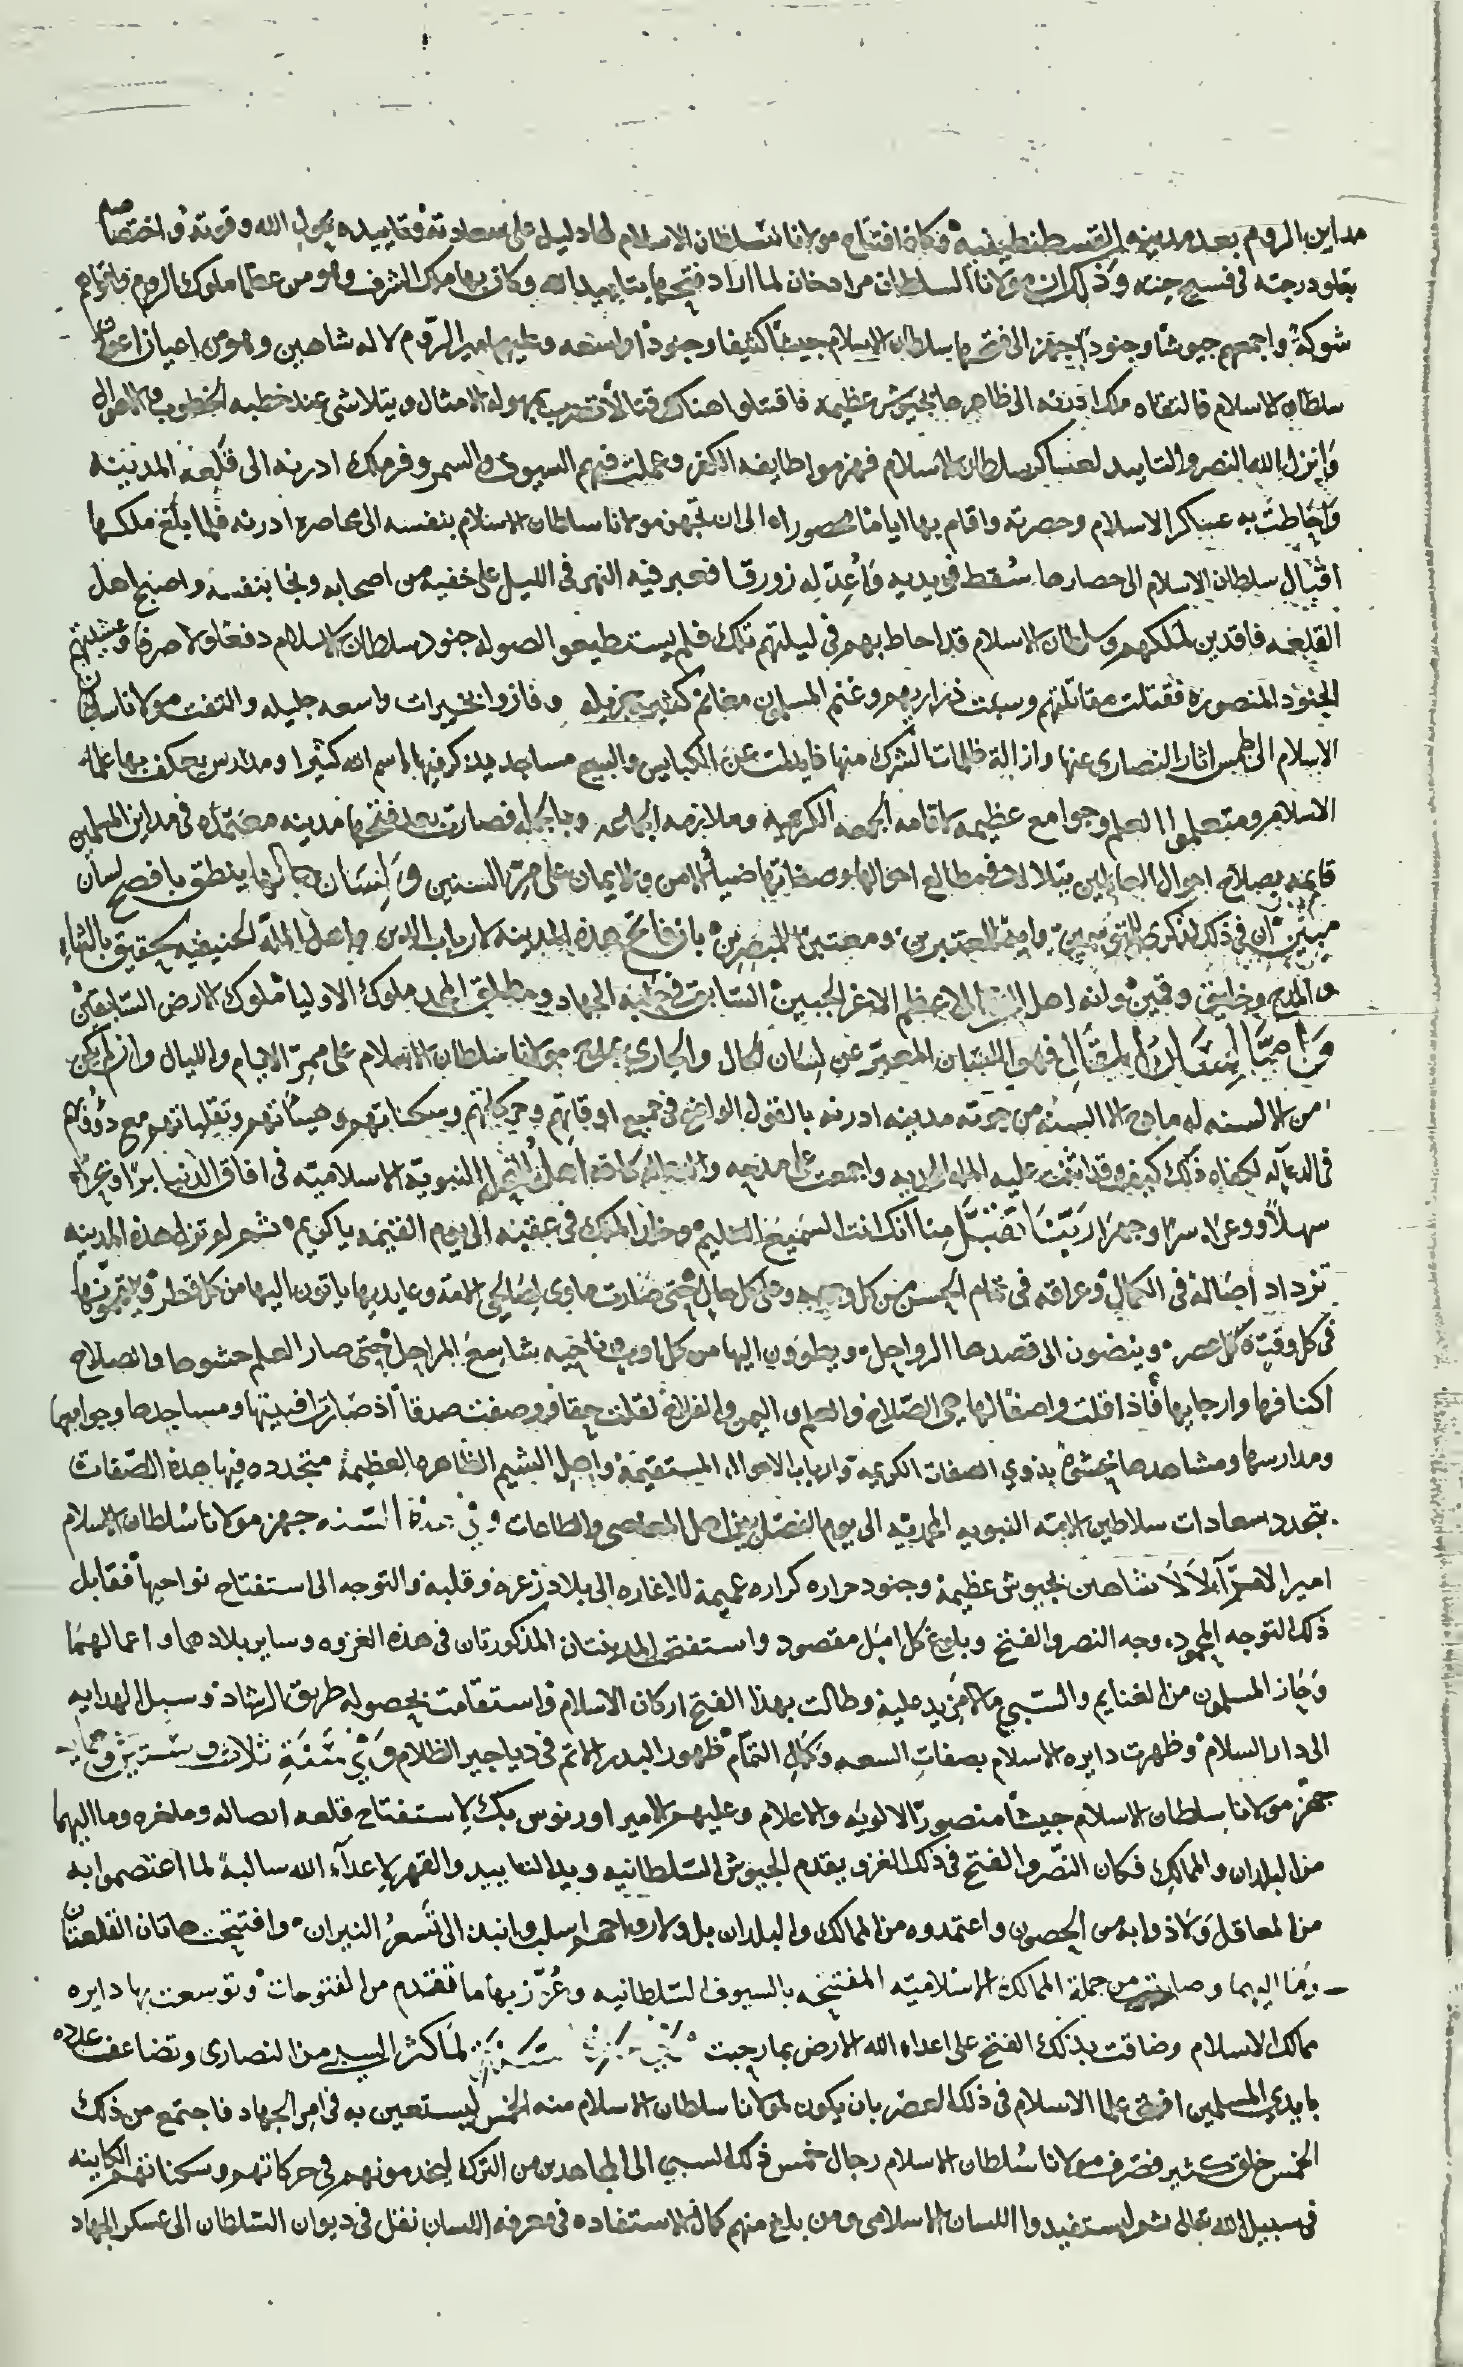 مداين الروم بعد مدينه القسطنطينيه فكان افتتاح مولانا السلطان الاسلام لها دليل على سعادته وتاييده بحول الله وقوته واختصاصه
بعلو درجته في فسيح جنته وذلك ان مولانا السلطان مراد خان لما اراد فتحها بتاييد الله وكان بها ملك الشرف وهو من عظما ملوك الروم واقواهم
شوكة واجمعهم جيوشا وجنودا جهز الى فتحها سلطان الاسلام جيشا كثيفا وجنودا واسعه وعليهم امير الروم لاله شاهين وهو من اعيان اعوان
سلطان الاسلام فالتقاه ملك ادرنه الى ظاهرها بجيوش عظيمه فاقتتلوا هناك قتالا تضرب بهوله الامثال ويتلاشى عند خطبه الخطوب والاهوال
وانزل الله النصر والتاييد لعساكر سلطان الاسلام فهزموا طايفه الكفر وعملت فيهم السيوف والسمر وفر ملك ادرنه الى قلعه المدينه
واحاطت به عساكر الاسلام وحصرته واقام بها اياما محصورا الى ان تجهز مولانا سلطان الاسلام بنفسه الى محاصره ادرنه فلما بلغ ملكها
اقبال سلطان الاسلام الى حصارها سقط في يديه واعد له زورقا فعبر فيه النهر في الليل على خفيه من اصحابه ونجا بنفسه واصبح اهل
القلعه فاقدين لملكهم وسلطان الاسلام قد احاط بهم في ليلتهم تلك فلم يستطيعوا لصوله جنود سلطان الاسلام دفعا ولا صرفا وغشيتهم
الجنود المنصوره فقتلت مقاتلتهم وسبت ذراريهم وغنم المسلمون مغانم كثيره جزيله وفازوا بخيرات واسعه جليله والتفت مولانا سلطان
الاسلام الى طمس اثار النصارى عنها وازالة ظلمات الشرك منها فابدلت عن الكنايس والبيع مساجد يذكر فيها اسم الله كثيرا ومدارس يعكف بها علما
الاسلام ومتعلموا العلم وجوامع عظيمه لاقامه الجمعه الكريمه وملازمه الجماعه وبالجمله فصارت بعد فتحها مدينه معتمده في مداين المسلمين
قايمه بصلاح احوال العاملين يتلالا في مطالع احوالها وصفاتها ضيا الامن والايمان على مر السنين ولسان حالها ينطق بافصح لسان
مبين ان في ذلك لذكرى بان فاتح هذه المدينه لارباب الدين واهل المله الحنيفيه لحقيق بالثناء
والمدح وخليق وقمين وانه اهل الاعظم الاغر الجبين السابق في حلبه الجهاد ملوك الاوليا ملوك الارض السابقين
فهو اللسان المعبر عن لسان الحال والجاري بمدح مولانا سلطان الاسلام على ممر الايام والليال وان لم يكن
من الالسنه له مادح الا السنه من حوته مدينه ادرنه بالقول الواضح في جميع اوقاتهم وحركاتهم وسكناتهم وهياتهم وتقلباتهم مع
في الدعا له لكفاه ذلك كيف وقد اثنت عليه واجمعت على مدحه كافه اهل النبويه الاسلاميه في افاق الدنيا برا وبحرا
سهلا ووعرا سرا وجهرا ربنا تقبل منا انك انت السميع العليم وخلد الملك في عقبه الى يوم القيمه يا كريم ثم لم تزل هذه المدينه
تزداد اصاله في الكمال وعراقه في تمام الحسن من كل وجه وعلى كل حال حتى صارت ماوى لصالحي الامه وعابديها ياتون اليها من كل قطر
في كل وقت وكل عصر وينضون الى قصدها الرواحل ويطوون اليها من كل اوب وناحيه شاسع المراحل حتى صار العلم حشوها والصلاح
اكنافها وارجايها فاذا قلت واصفا لها هي الصلاح والعلم واليمن والفلاح لقلت حقا ووصفت صدقا اذ صارت افنيتها ومساجدها وجوامعها
ومدارسها ومشاهدها بذوي الصفات الكريمه وارباب الاحوال المستقيمه واهل الشيم الظاهره العظيمة متجدده فيها هذه الصفات
بتجدد سعادات سلاطين الامه النبويه المحمديه الى يوم الفصل بين اهل المعاصي والطاعات وفي هذه السنه جهز مولانا سلطان الاسلام
امير الامرا لالا شاهين بجيوش عظيمة وجنود جراره كراره عميمة للاغاره الى بلاد زغره وقلبه والتوجه الى استفتاح نواحيها فقابل
ذلك التوجه المحمود وجه النصر والفتح وبلوغ كل امل مقصود واستفتح المدينتان المذكورتان في هذه الغزوه وساير بلادهما واعمالهما
وحاز المسلمون من الغنايم والسبي ما لا مزيد عليه وطالت بهذا الفتح اركان الاسلام واستقامت بحصوله طريق الرشاد وسبل الهدايه
الى دار السلام وظهرت دايره الاسلام بصفات السعه وكمال التمام ظهور البدر الاتم في دياجير الظلام وفي سنة ثلاث وستين وسبعمايه
جهز مولانا سلطان الاسلام جيشا منصور الالويه والاعلام وعليهم الامير اورنوس بك لاستفتاح قلعه ابصاله وملغره وما اليهما
من البلدان والممالك فكان النصر والفتح في ذلك الغزو يقدم الجيوش السلطانيه ويد التاييد والقهر لاعداء الله سالبة لما اعتصموا به
من المعاقل ولاذوا به من الحصون واعتمدوه من الممالك والبلدان بل ولارواحهم اسلب وانبذ الى تسعر النيران وافتتحت هاتان القلعتان
وما اليهما وصارت من جملة الممالك الاسلاميه المفتتحه بالسيوف السلطانيه وعزز بها ما تقدم من الفتوحات وتوسعت بها دايره
ممالك الاسلام وضاقت بذلك الفتح على اعداء الله الارض بما رحبت لما كثر السبي من النصارى وتضاعف عدده
بايدي المسلمين افتى علما الاسلام في ذلك العصر بان يكون لمولانا سلطان الاسلام منه الخمس ليستعين به في امر الجهاد فاجتمع من ذلك
الخمس خلق كثير فصرف مولانا سلطان الاسلام رجال خمس ذلك السبي الى المجاهدين من الترك ليخدمونهم في حركاتهم وسكناتهم الكاينه
في سبيل الله تعالى ثم ليستفيدوا اللسان الاسلامي ومن بلغ منهم كمال الاستفاده في معرفه اللسان نقل في ديوان السلطان الى عسكر الجهاد